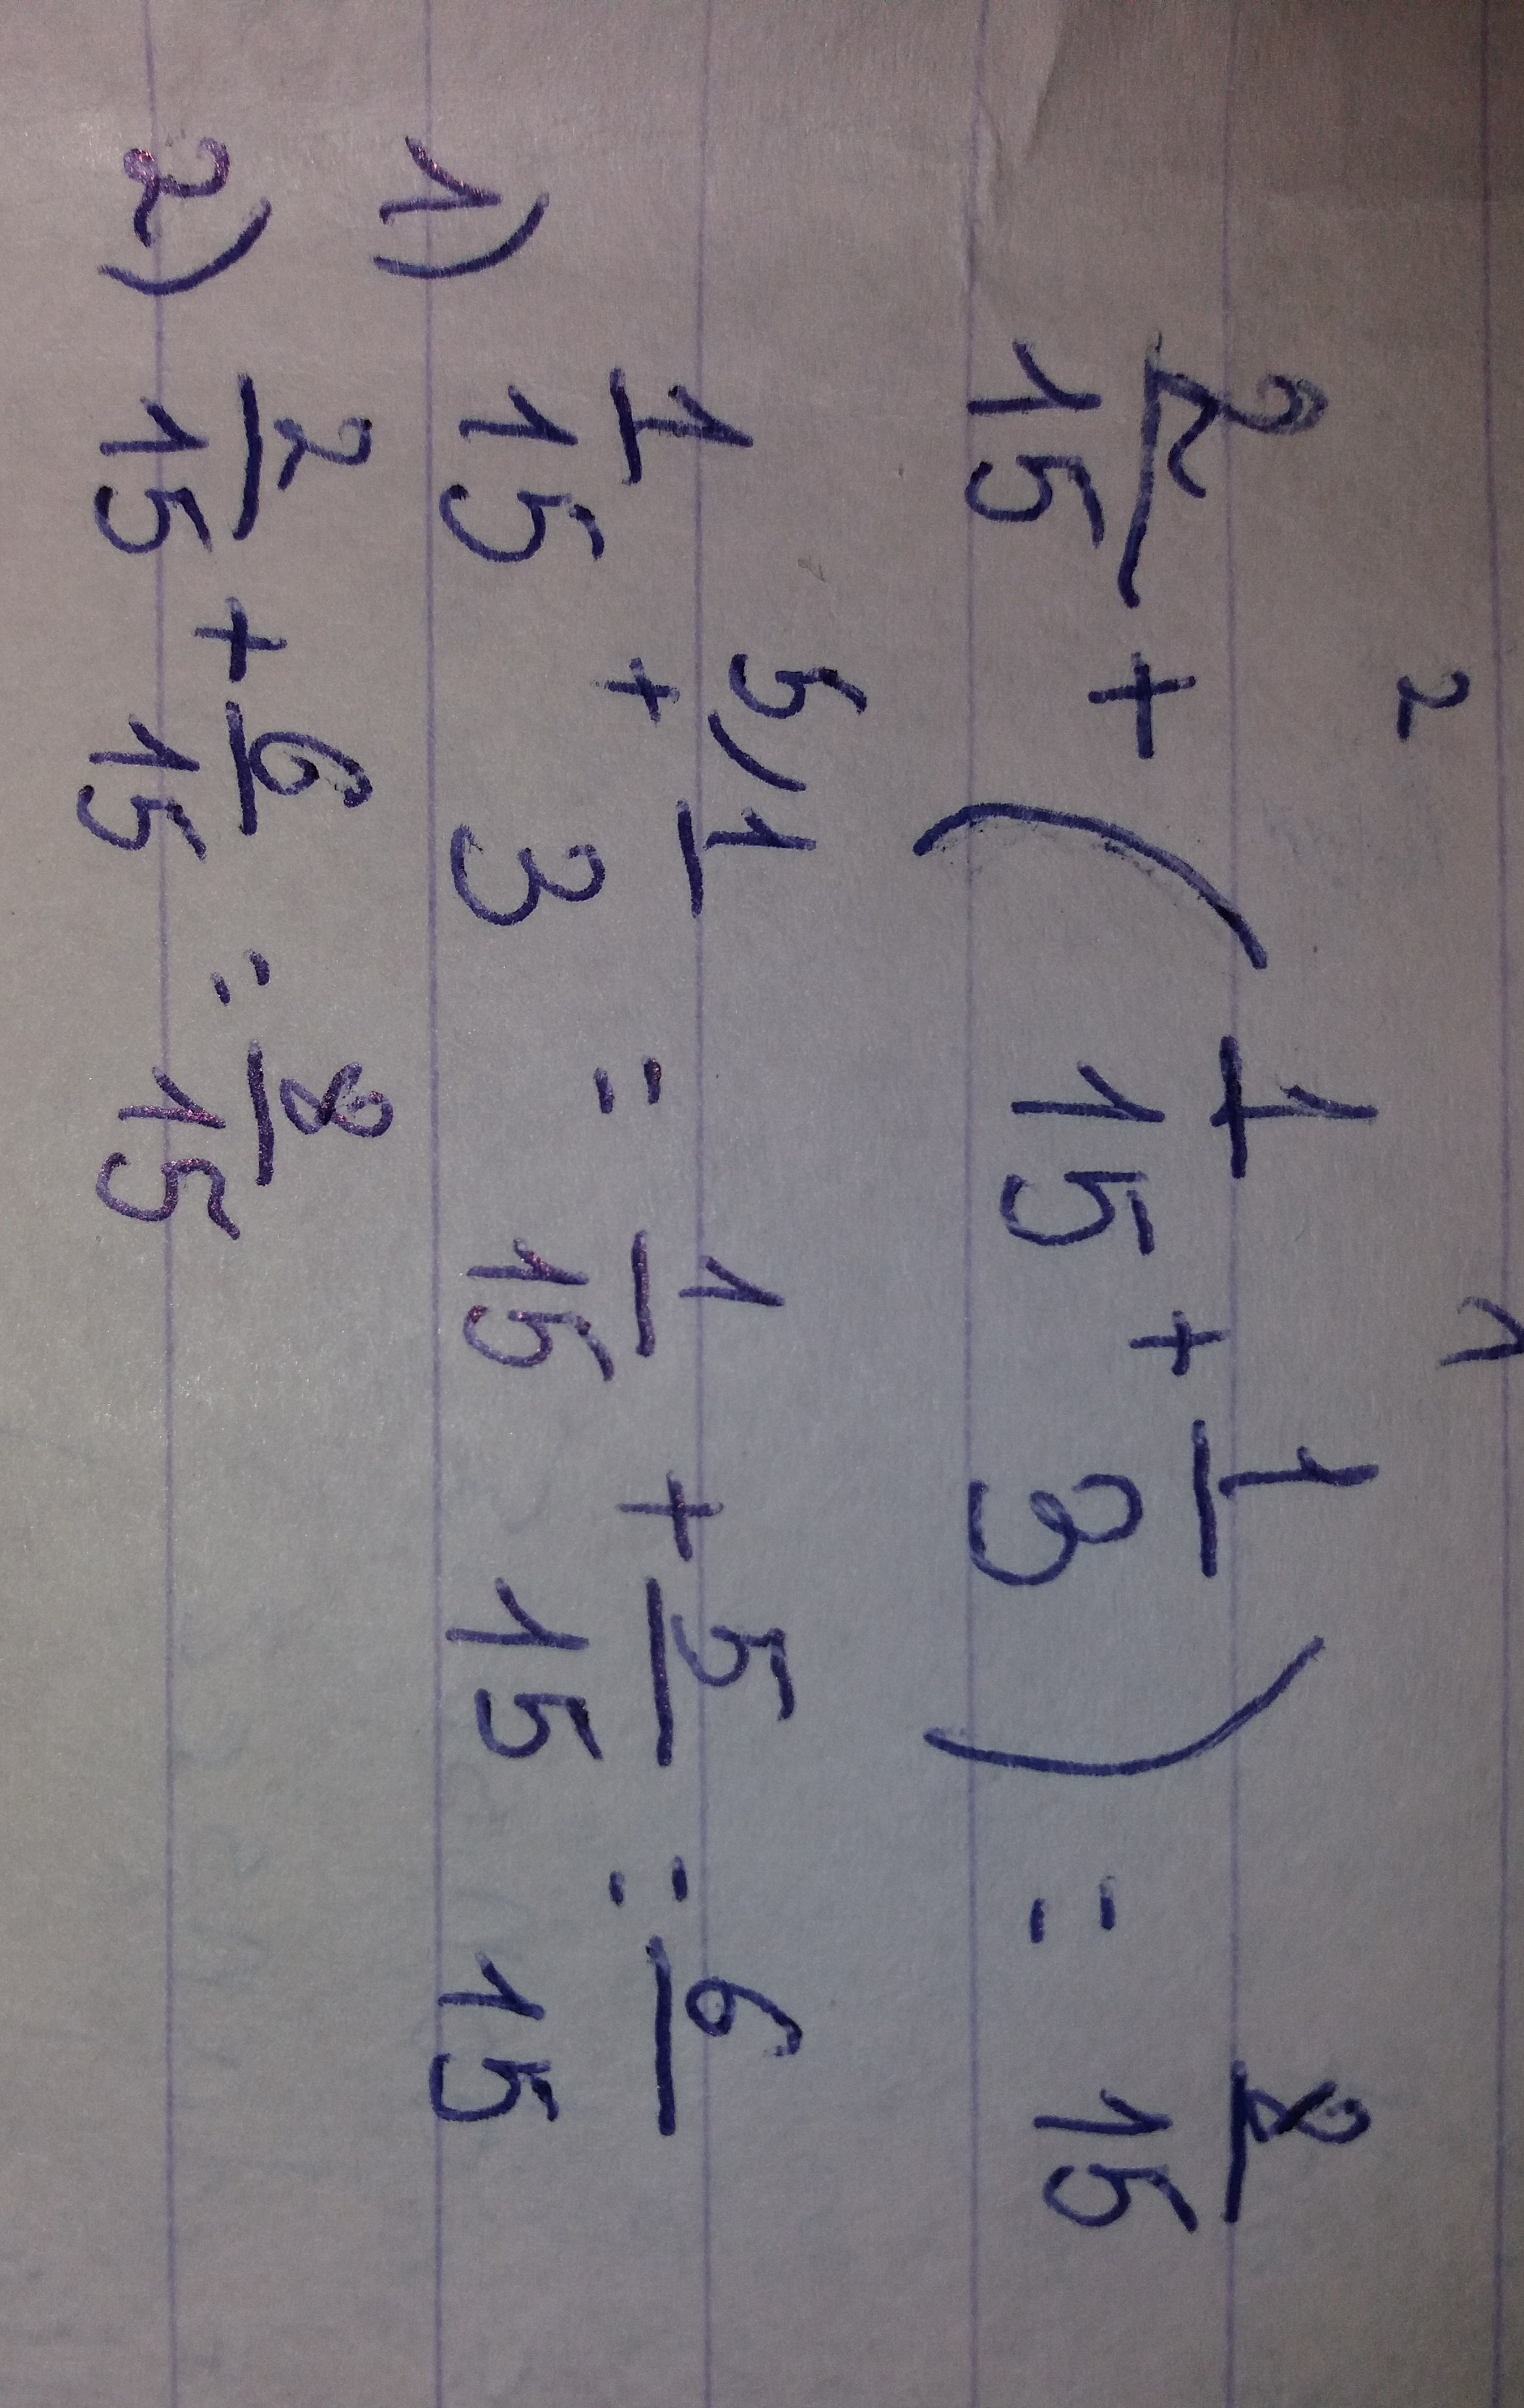 2 1
2/15 + (1/15 + 1/3) = 8/15
1) 1/15 + 5/1/3 = 1/15 + 5/15 = 6/15
2) 2/15 + 6/15 = 8/15